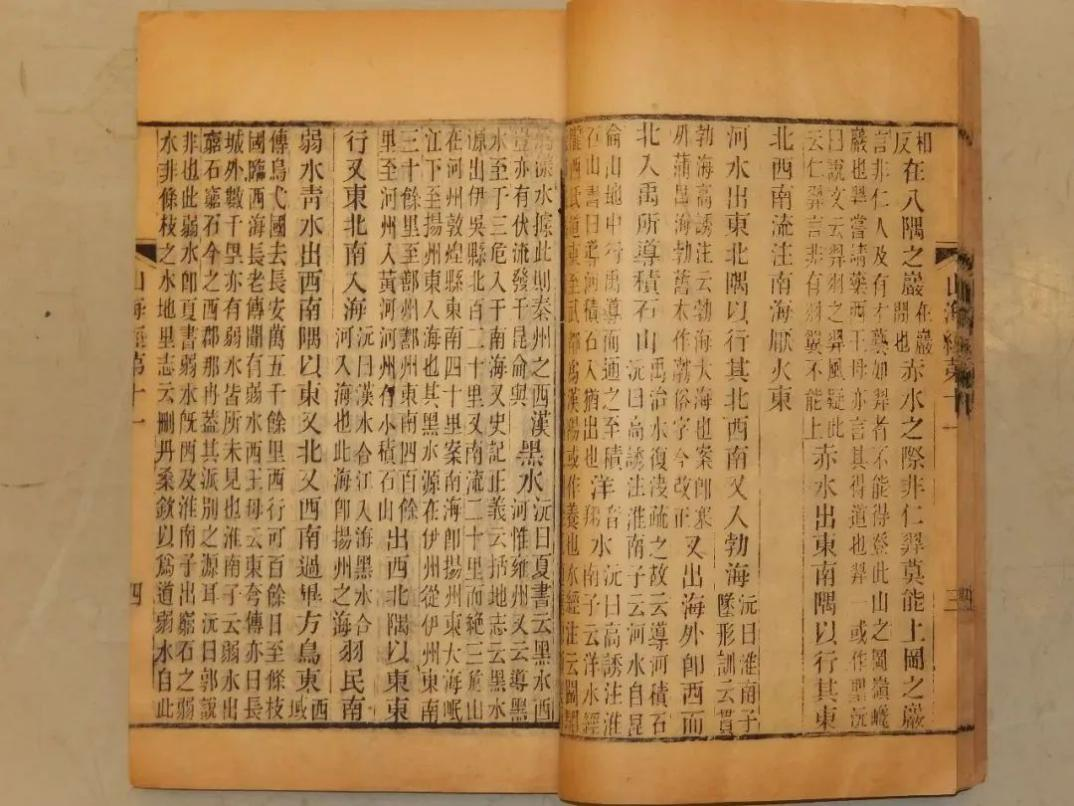 相反在八隅之巖在巖間也赤水之際非仁羿莫能上岡之巖
言非仁人及有才藝如羿者不能得登此山之岡嶺巉
巖也羿嘗請藥西王母亦言其得道也羿一或作聖沅
曰說文云羿羽之羿風疑此云仁羿言非有羽翼不能上赤水出東南隅以行其東
北西南流注南海厭火東
河水出東北隅以行其北西南又入勃海沅曰淮南子墜形訓云貫
勃海高誘注云勃海大海也案卽蒲昌海勃舊本作渤俗字今改正又出海外卽西而
北入禹所導積石山禹治水復決疏之故云導河積石沅曰高誘注淮南子云河水自昆
侖山地中行禹導而通之至積石山書曰導河積石入猶出也洋音翔水沅曰高誘注淮南子云洋水經
隴西氐道東至武都爲漢陽或作養也水經注云闞駰
山海經第十一
三
爲漾水據此則秦州之西漢豈亦有伏流發于昆侖與黑水沅曰夏書云黑水西河惟雍州又云導黑
水至于三危入于南海又史記正義云括地志云黑水
源出伊吳縣北百二十里又南流二十里而絕三危山
在河州敦煌縣東南四十里案南海卽揚州東大海岷
江下至揚州東入海也其黑水源在伊州從伊州東南
三十餘里至鄯州鄯州東南四百餘里至河州入黃河河州有小積石山出西北隅以東東
行又東北南入海沅曰漢水合江入海黑水合河入海也此海卽揚州之海羽民南
弱水青水出西南隅以東又北又西南過畢方鳥東西域
傳烏弋國去長安萬五千餘里西行可百餘日至條枝
國臨西海長老傳聞有弱水西王母云東夸傳亦曰長
城外數千里亦有弱水皆所未見也淮南子云弱水出
窮石窮石今之西郡那冉蓋其派別之源耳沅曰郭說
非也此弱水卽夏書弱水旣西及淮南子出窮石之弱
水非條枝之水地里志云刪丹桑欽以爲道弱水自此
山海經第十一
四